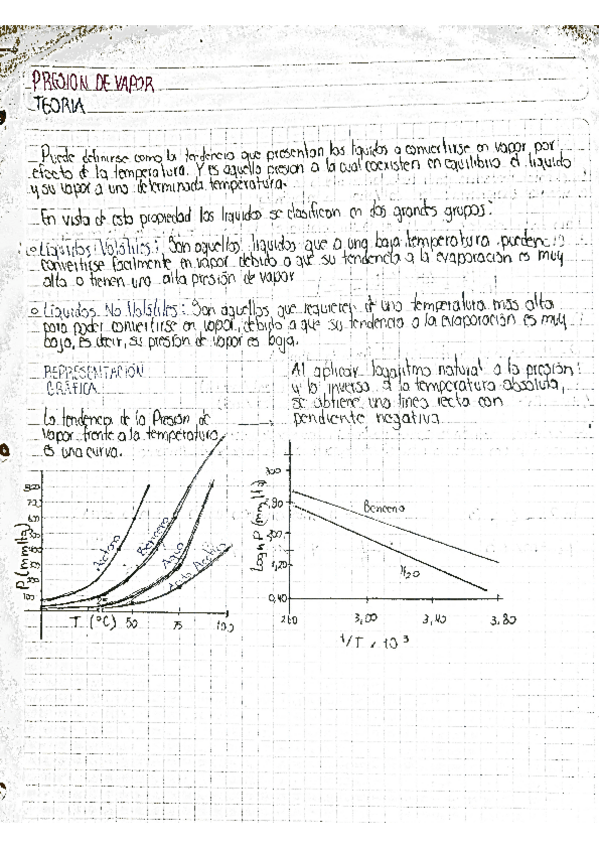 PRESION DE VAPOR
TEORIA
Puede definirse como la tendencia que presentan los líquidos a convertirse en vapor por
efecto de la temperatura. Y es aquella presion a la cual coexisten en equilibrio el líquido
y su vapor a una determinada temperatura.
En vista de esta propiedad los líquidos se clasifican en dos grandes grupos:
Líquidos Volátiles: Son aquellos líquidos que a una baja temperatura pueden
convertirse facilmente en vapor debido a que su tendencia a la evaporación es muy
alta o tienen una alta presión de vapor
Líquidos No Volátiles: Son aquellos que requieren de una temperatura más alta
para poder convertirse en vapor, debido a que su tendencia a la evaporación es muy
baja, es decir, su presion de vapor es baja.
REPRESENTACIÓN
GRÁFICA
La tendencia de la Presión de
vapor frente a la temperatura
es una curva.
Al aplicar logaritmo natural a la presión
y la inversa a la temperatura absoluta,
se obtiene una linea recta con
pendiente negativa
P (mmHg)
Acetona
Benceno
Agua
T (°C) 50 75 100
Log n P (mmHg)
Benceno
H2O
0,40
3,00 3,40 3.80
1/T x 10³